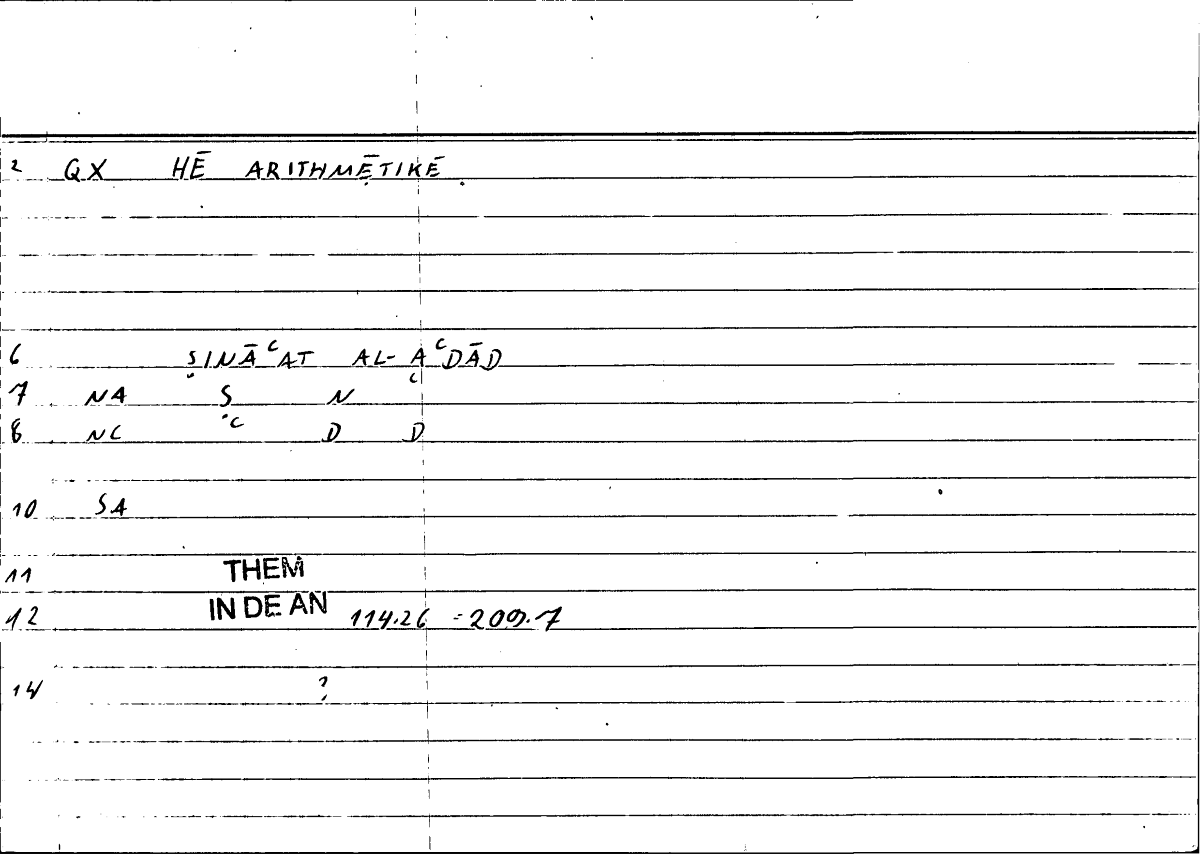 2 QX HĒ ARITHMĒTIKĒ
6 ṢINĀʿAT AL-AʿDĀD
7 NA Ṣ N ʿ
8 NC ʿ D D
10 SA
11 THEM
12 IN DE AN 114.26 = 209.7
14 ?